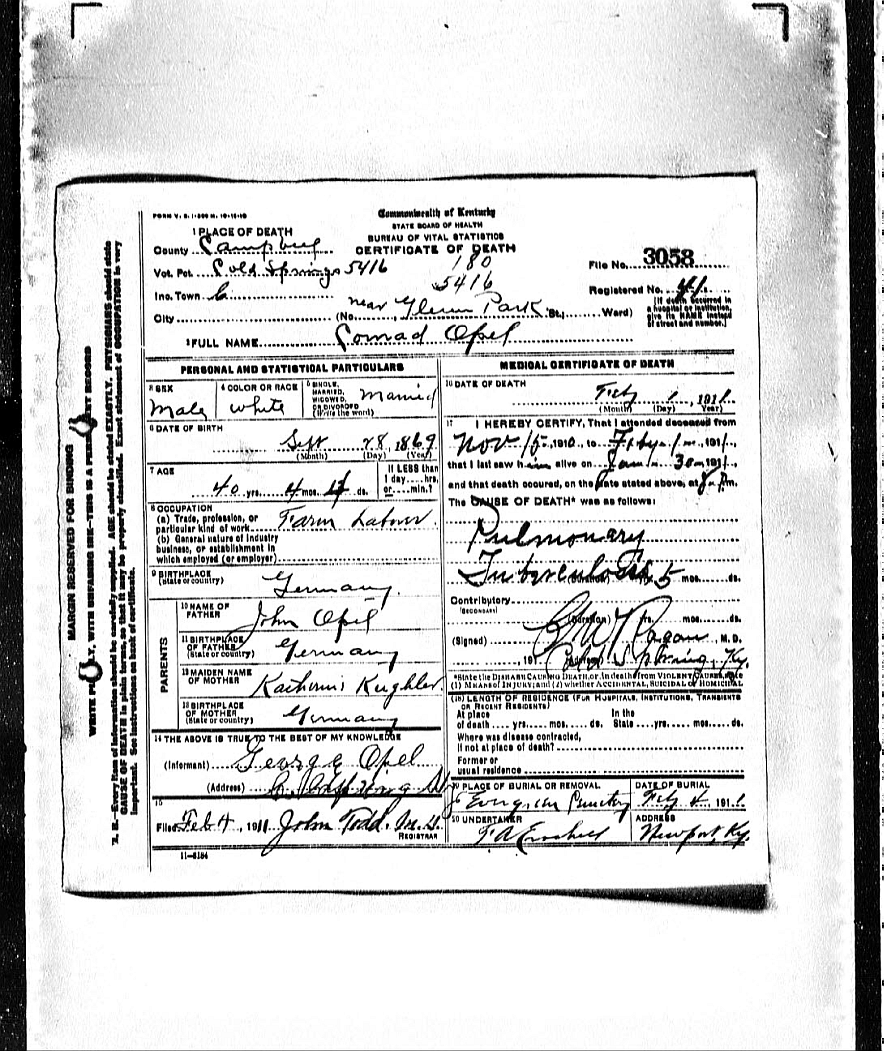 FORM V. S. 1-200 M. 10-15-10
Commonwealth of Kentucky
STATE BOARD OF HEALTH
BUREAU OF VITAL STATISTICS
CERTIFICATE OF DEATH
1 PLACE OF DEATH
County Campbell
Vot. Pct. Cold Springs 5416
180
5416
Inc. Town
City
(No. near Glenn Park St.; Ward)
File No. 3058
Registered No. 41
(If death occurred in a hospital or institution, give its NAME instead of street and number.)
2 FULL NAME Conrad Opel
PERSONAL AND STATISTICAL PARTICULARS
3 SEX Male
4 COLOR OR RACE White
5 SINGLE, MARRIED, WIDOWED, OR DIVORCED (Write the word) Married
6 DATE OF BIRTH
Sept 28 1869
(Month) (Day) (Year)
7 AGE
40 yrs. 4 mos. ds.
If LESS than 1 day.....hrs. or.....min.?
8 OCCUPATION
(a) Trade, profession, or particular kind of work Farm Laborer
(b) General nature of industry business, or establishment in which employed (or employer)
9 BIRTHPLACE
(State or country) Germany.
PARENTS
10 NAME OF FATHER John Opel
11 BIRTHPLACE OF FATHER (State or country) Germany
12 MAIDEN NAME OF MOTHER
13 BIRTHPLACE OF MOTHER (State or country) Germany
14 THE ABOVE IS TRUE TO THE BEST OF MY KNOWLEDGE
(Informant) George Opel
(Address)
15
Filed Feb 4, 1911 John Todd. M.D.
REGISTRAR
11-5184
MEDICAL CERTIFICATE OF DEATH
16 DATE OF DEATH
Feby 1, 1911
(Month) (Day) (Year)
17 I HEREBY CERTIFY, That I attended deceased from
Nov 15, 1910, to Feby 1, 1911,
that I last saw him alive on Jan 30, 1911,
and that death occured, on the date stated above, at m.
The CAUSE OF DEATH* was as follows:
Pulmonary
Tuberculosis
(Duration) yrs. 5 mos. ds.
Contributory
(SECONDARY)
(Duration) yrs. mos. ds.
(Signed) Ragan, M. D.
, 191 (Address) Cold Spring, Ky.
*State the DISEASE CAUSING DEATH, or, in deaths from VIOLENT CAUSES, state
(1) MEANS OF INJURY; and (2) whether ACCIDENTAL, SUICIDAL or HOMICIDAL
18 LENGTH OF RESIDENCE (FOR HOSPITALS, INSTITUTIONS, TRANSIENTS OR RECENT RESIDENTS)
At place of death.....yrs.....mos.....ds. In the State.....yrs.....mos.....ds.
Where was disease contracted, if not at place of death?
Former or usual residence
19 PLACE OF BURIAL OR REMOVAL
Evergreen Cemetery
DATE OF BURIAL
Feby 4, 1911.
20 UNDERTAKER
ADDRESS
Newport, Ky.
MARGIN RESERVED FOR BINDING
WRITE PLAINLY, WITH UNFADING INK—THIS IS A PERMANENT RECORD
N. B.—Every item of information should be carefully supplied. AGE should be stated EXACTLY. PHYSICIANS should state
CAUSE OF DEATH in plain terms, so that it may be properly classified. Exact statement of OCCUPATION is very
important. See instructions on back of certificate.